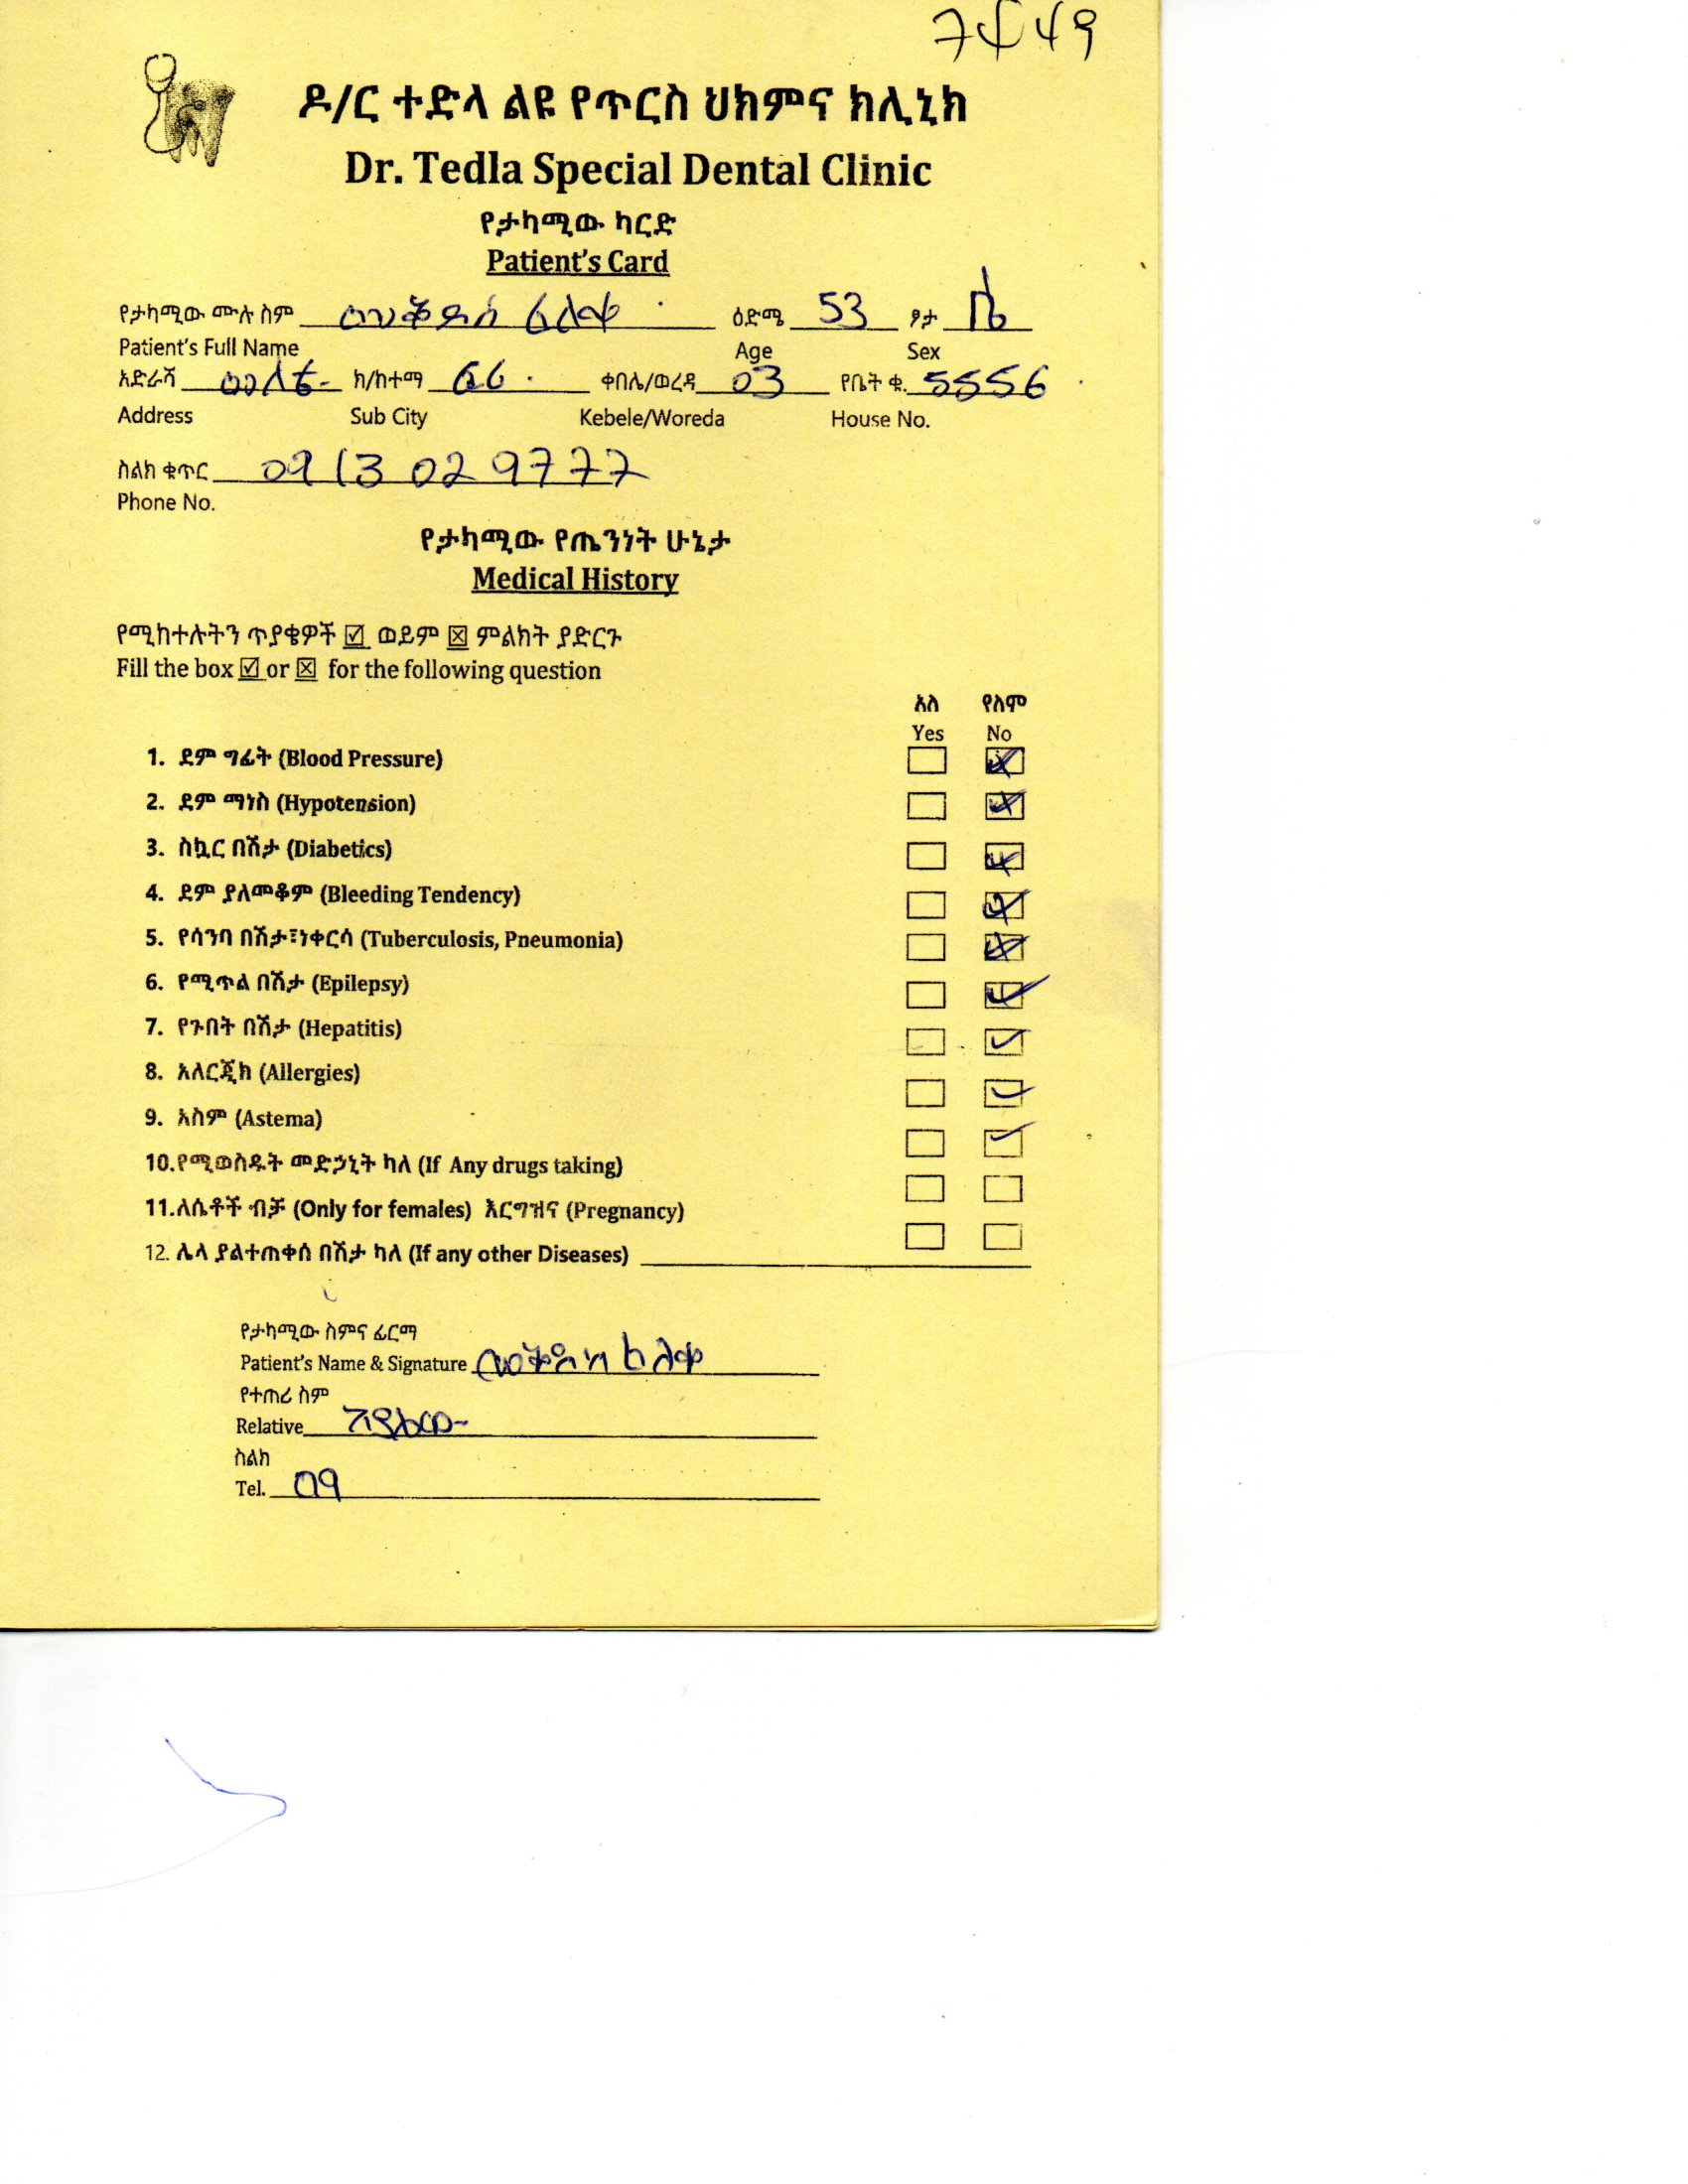 7449
ዶ/ር ተድላ ልዩ የጥርስ ህክምና ክሊኒክ
Dr. Tedla Special Dental Clinic
የታካሚው ካርድ
Patient's Card
የታካሚው ሙሉ ስም ዕድሜ 53 ፆታ ሴ
Patient's Full Name Age Sex
አድራሻ ክ/ከተማ ቀበሌ/ወረዳ 03 የቤት ቁ. 5556
Address Sub City Kebele/Woreda House No.
ስልክ ቁጥር 0913029777
Phone No.
የታካሚው የጤንነት ሁኔታ
Medical History
የሚከተሉትን ጥያቄዎች ☑ ወይም ☒ ምልክት ያድርጉ
Fill the box ☑ or ☒ for the following question
አለ የለም
Yes No
1. ደም ግፊት (Blood Pressure)
2. ደም ማነስ (Hypotension)
3. ስኳር በሽታ (Diabetics)
4. ደም ያለመቆም (Bleeding Tendency)
5. የሳንባ በሽታ፣ነቀርሳ (Tuberculosis, Pneumonia)
6. የሚጥል በሽታ (Epilepsy)
7. የጉበት በሽታ (Hepatitis)
8. አለርጂክ (Allergies)
9. አስም (Astema)
10.የሚወስዱት መድኃኒት ካለ (If Any drugs taking)
11.ለሴቶች ብቻ (Only for females) እርግዝና (Pregnancy)
12. ሌላ ያልተጠቀሰ በሽታ ካለ (If any other Diseases)
የታካሚው ስምና ፊርማ
Patient's Name & Signature
የተጠሪ ስም
Relative
ስልክ
Tel. 09